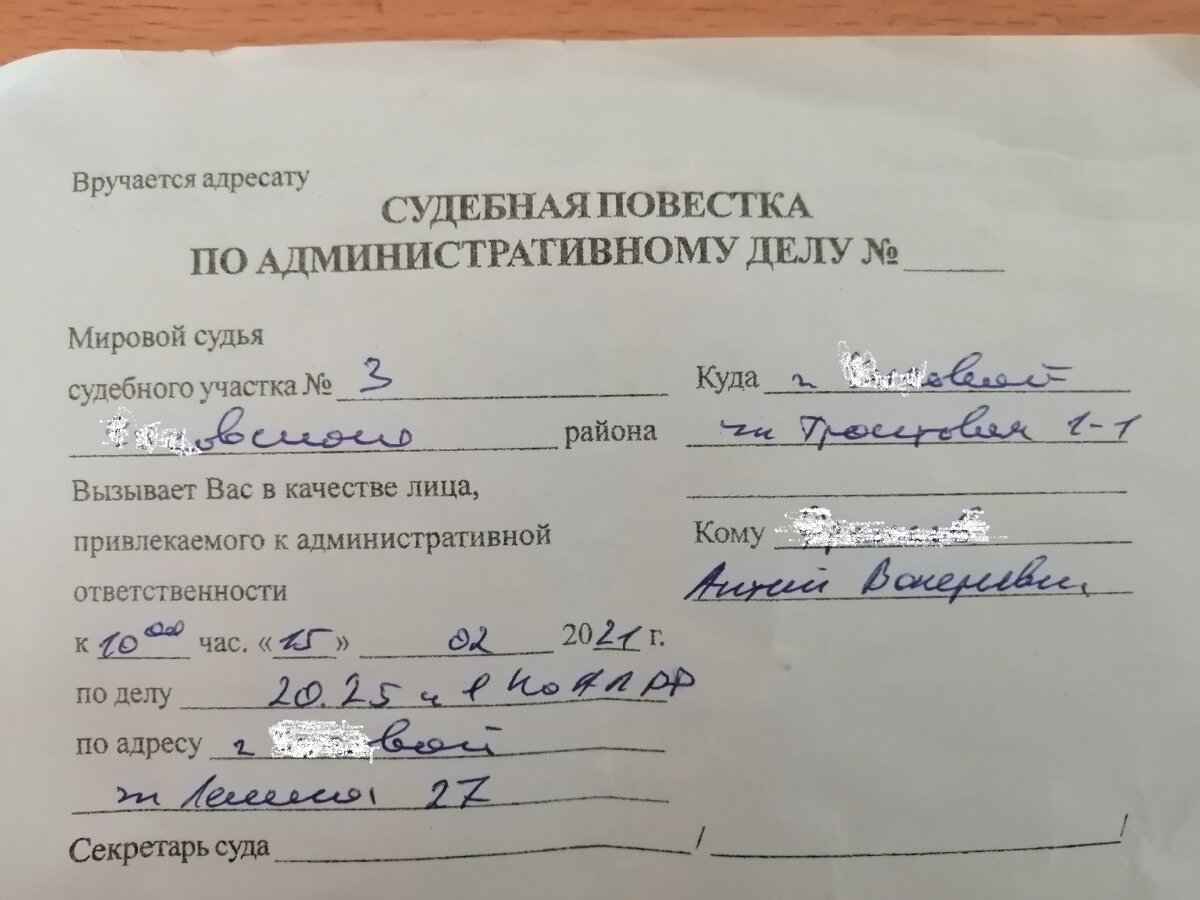 Вручается адресату
СУДЕБНАЯ ПОВЕСТКА
ПО АДМИНИСТРАТИВНОМУ ДЕЛУ №
Мировой судья
судебного участка № 3
района
Вызывает Вас в качестве лица,
привлекаемого к административной
ответственности
к 10 00 час. «15» 02 2021 г.
по делу 20.25 ч 1 КоАП РФ
по адресу г
ул Ленина 27
Секретарь суда / /
Куда г
ул 1-1
Кому
Валерьевич